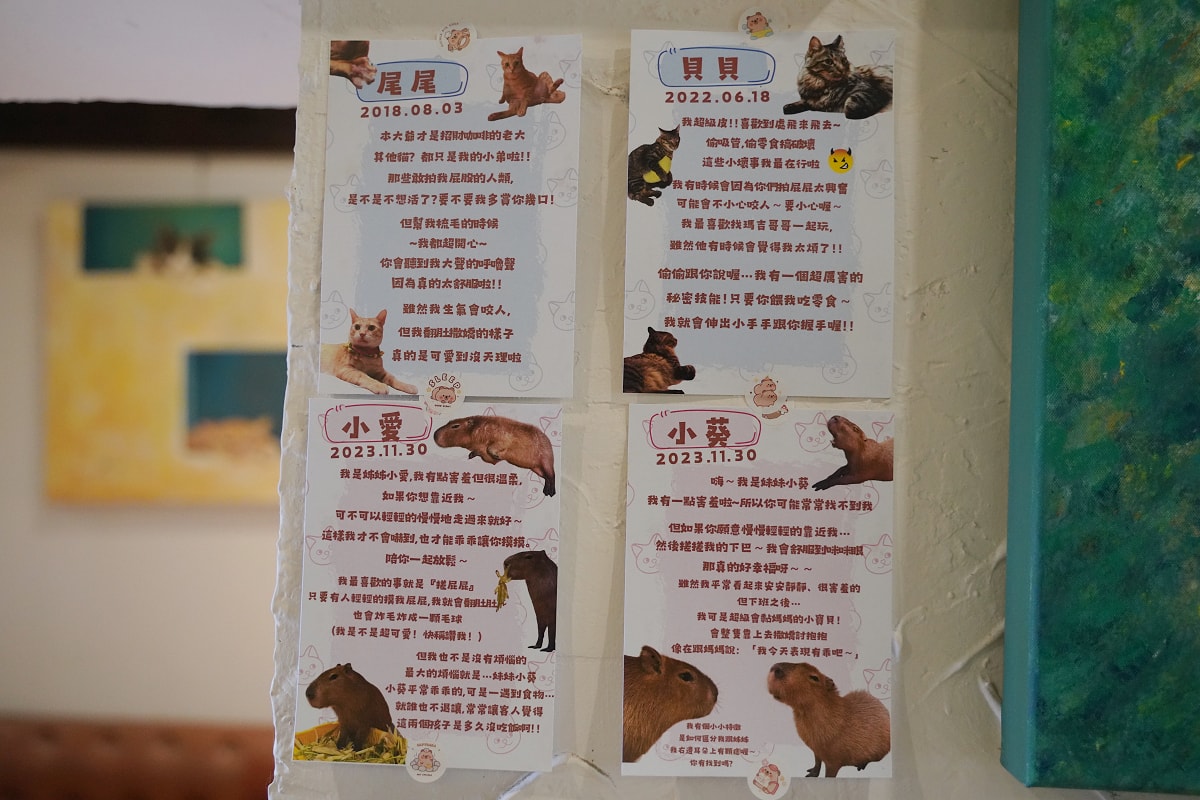 尾尾
2018.08.03
本大爺才是招財咖啡的老大
其他貓？都只是我的小弟啦!!
那些敢拍我屁股的人類,
是不是不想活了?要不要我多賞你幾口!
但幫我梳毛的時候
~我都超開心~
你會聽到我大聲的呼嚕聲
因為真的太舒服啦!!
雖然我生氣會咬人,
但我翻肚撒嬌的樣子
真的是可愛到沒天理啦
貝貝
2022.06.18
我超級皮!!喜歡到處飛來飛去~
偷吸管,偷零食搞破壞
這些小壞事我最在行啦
我有時候會因為你們拍屁屁太興奮
可能會不小心咬人~要小心喔~
我最喜歡找瑪吉哥哥一起玩,
雖然他有時候會覺得我太煩了!!
偷偷跟你說喔...我有一個超厲害的
秘密技能!只要你餵我吃零食~
我就會伸出小手手跟你握手喔!!
SLEEP
小愛
2023.11.30
我是姊姊小愛,我有點害羞但很溫柔,
如果你想靠近我~
可不可以輕輕的慢慢地走過來就好~
這樣我才不會嚇到,也才能乖乖讓你摸摸。
陪你一起放鬆~
我最喜歡的事就是『搓屁屁』
只要有人輕輕的摸我屁屁,我就會翻肚肚
也會炸毛炸成一顆毛球
(我是不是超可愛！快稱讚我！)
但我也不是沒有煩惱的
最大的煩惱就是...妹妹小葵
小葵平常乖乖的,可是一遇到食物...
就誰也不退讓,常常讓客人覺得
這兩個孩子是多久沒吃飯啊!!
小葵
2023.11.30
嗨~我是妹妹小葵
我有一點害羞啦~所以你可能常常找不到我
但如果你願意慢慢輕輕的靠近我...
然後搓搓我的下巴~我會舒服到咪咪眼
那真的好幸福呀~~
雖然我平常看起來安安靜靜、很害羞的
但下班之後...
我可是超級會黏媽媽的小寶貝!
會整隻靠上去撒嬌討抱抱
像在跟媽媽說：「我今天表現有乖吧~」
我有個小小特徵
是如何區分我跟姊姊
我右邊耳朵上有顆痣喔~
你有找到嗎?